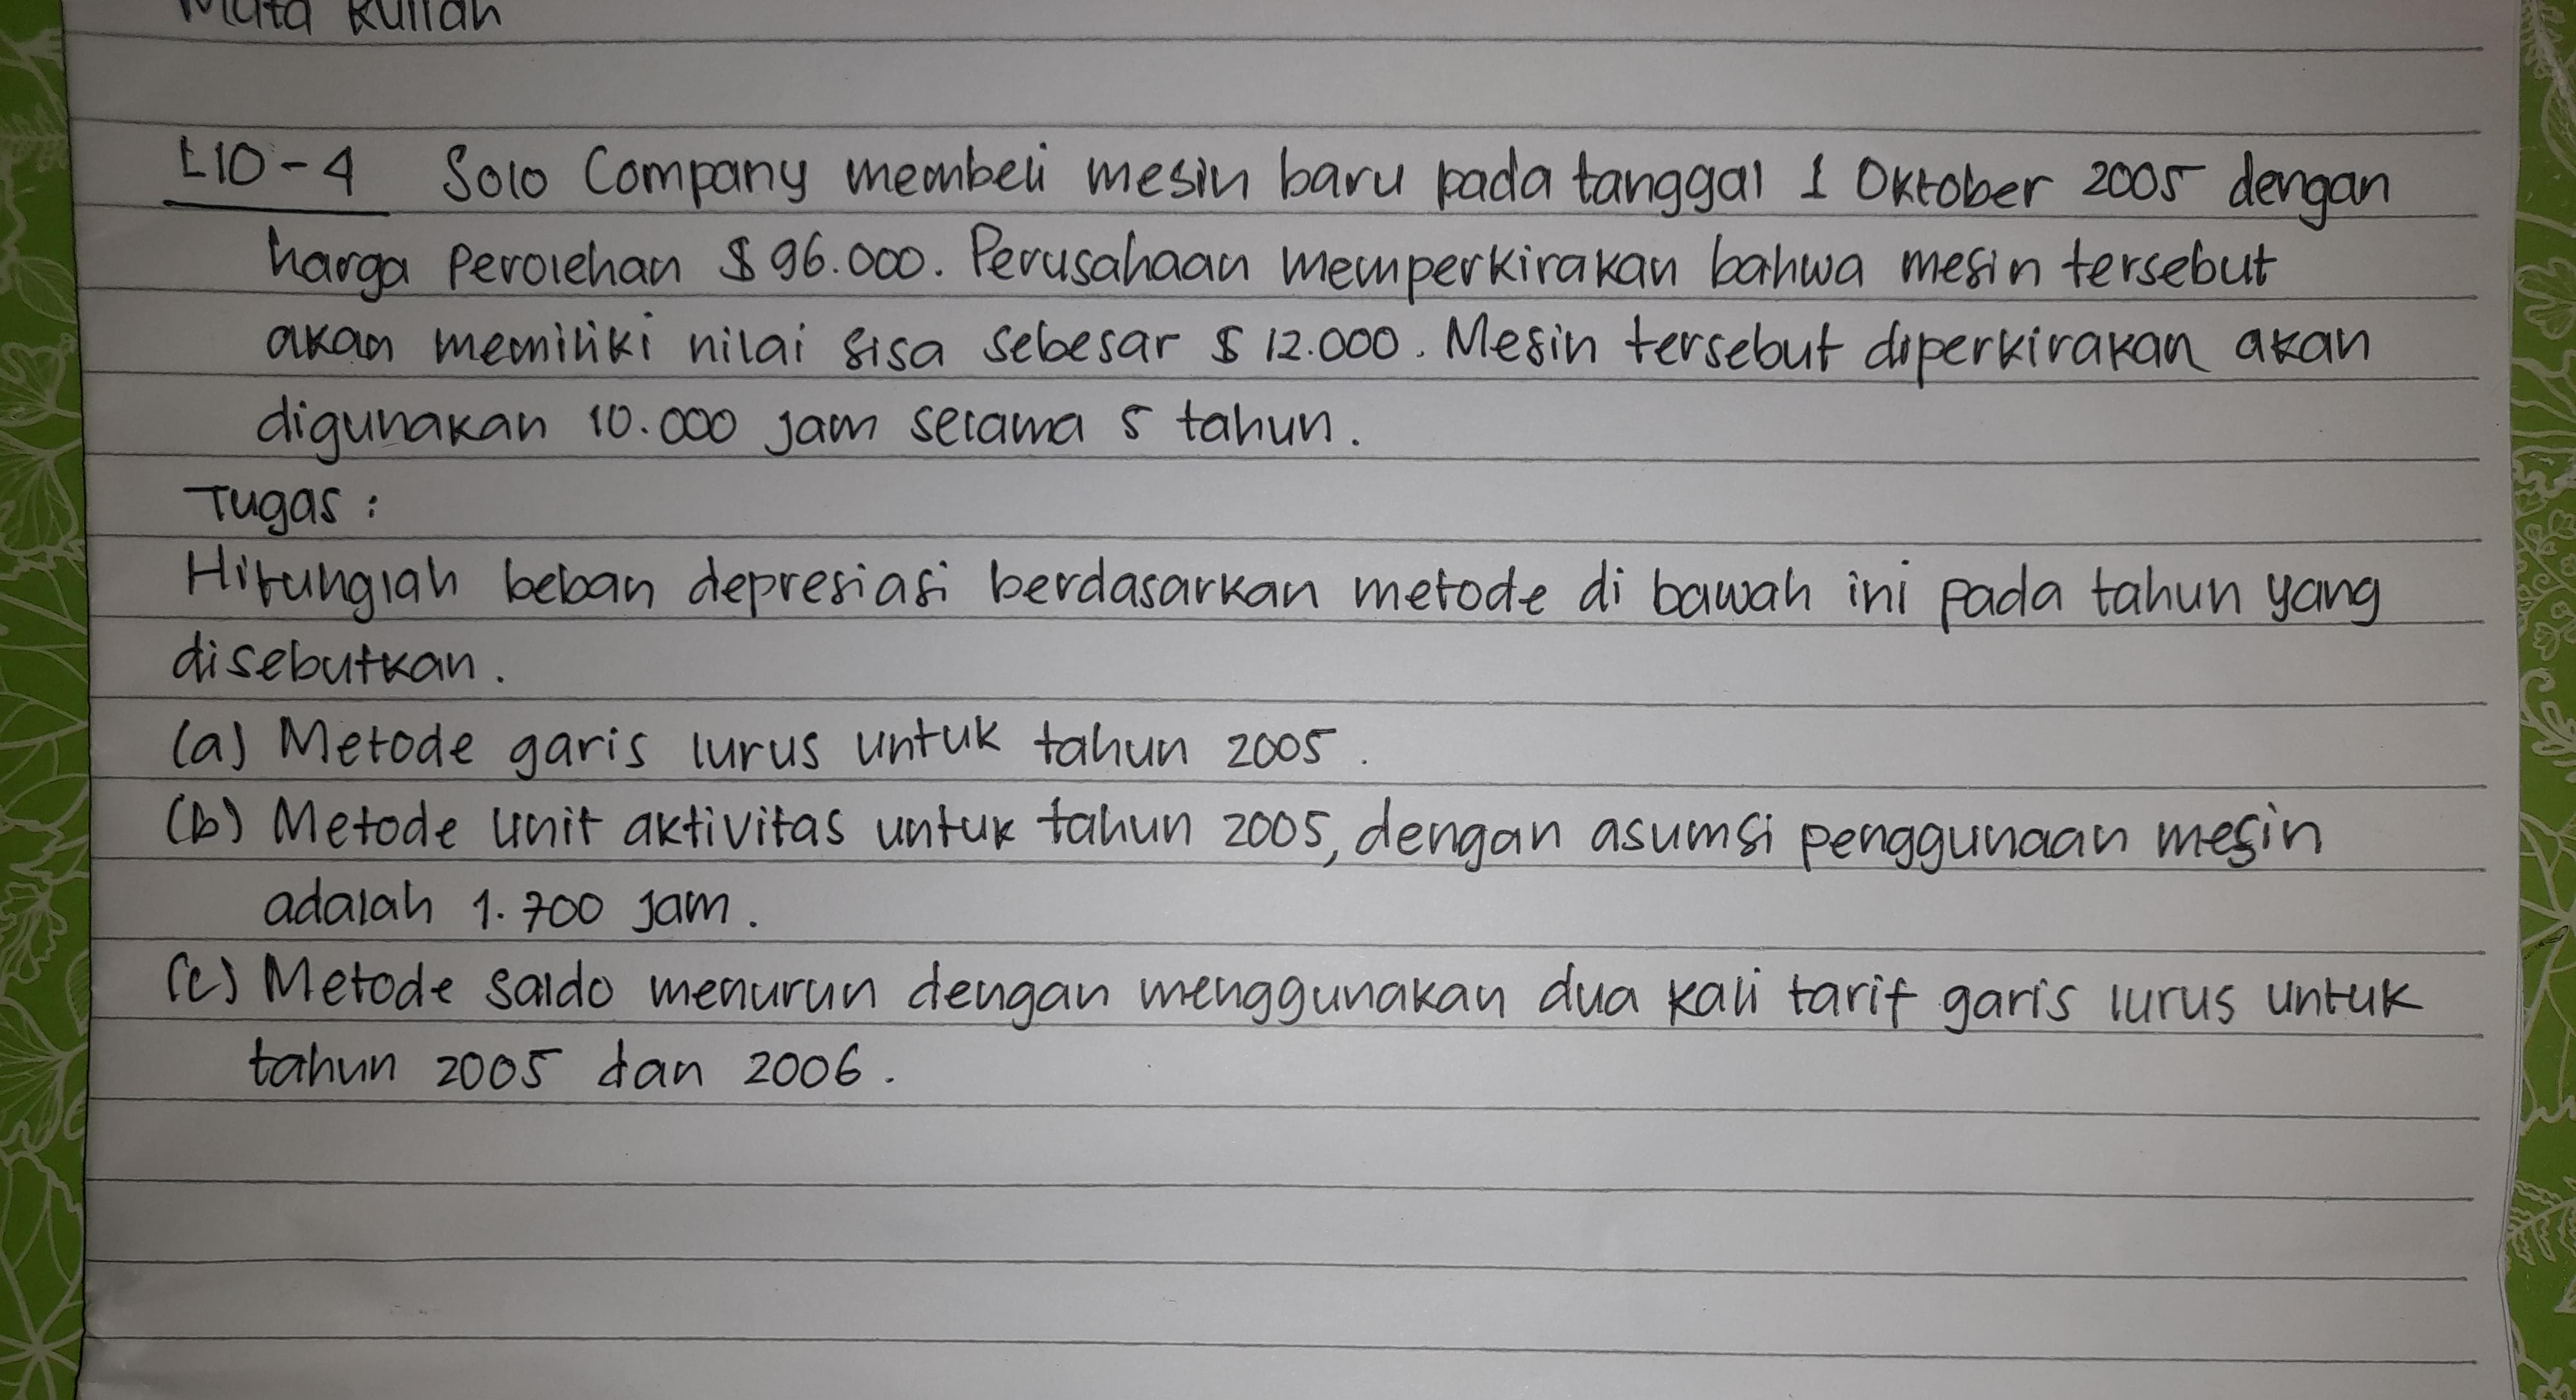 Mata Kuliah
L10-4 Solo Company membeli mesin baru pada tanggal 1 Oktober 2005 dengan
harga perolehan $ 96.000. Perusahaan memperkirakan bahwa mesin tersebut
akan memiliki nilai sisa sebesar $ 12.000. Mesin tersebut diperkirakan akan
digunakan 10.000 jam selama 5 tahun.
Tugas :
Hitunglah beban depresiasi berdasarkan metode di bawah ini pada tahun yang
disebutkan.
(a) Metode garis lurus untuk tahun 2005.
(b) Metode unit aktivitas untuk tahun 2005, dengan asumsi penggunaan mesin
adalah 1.700 jam.
(c) Metode saldo menurun dengan menggunakan dua kali tarif garis lurus untuk
tahun 2005 dan 2006.